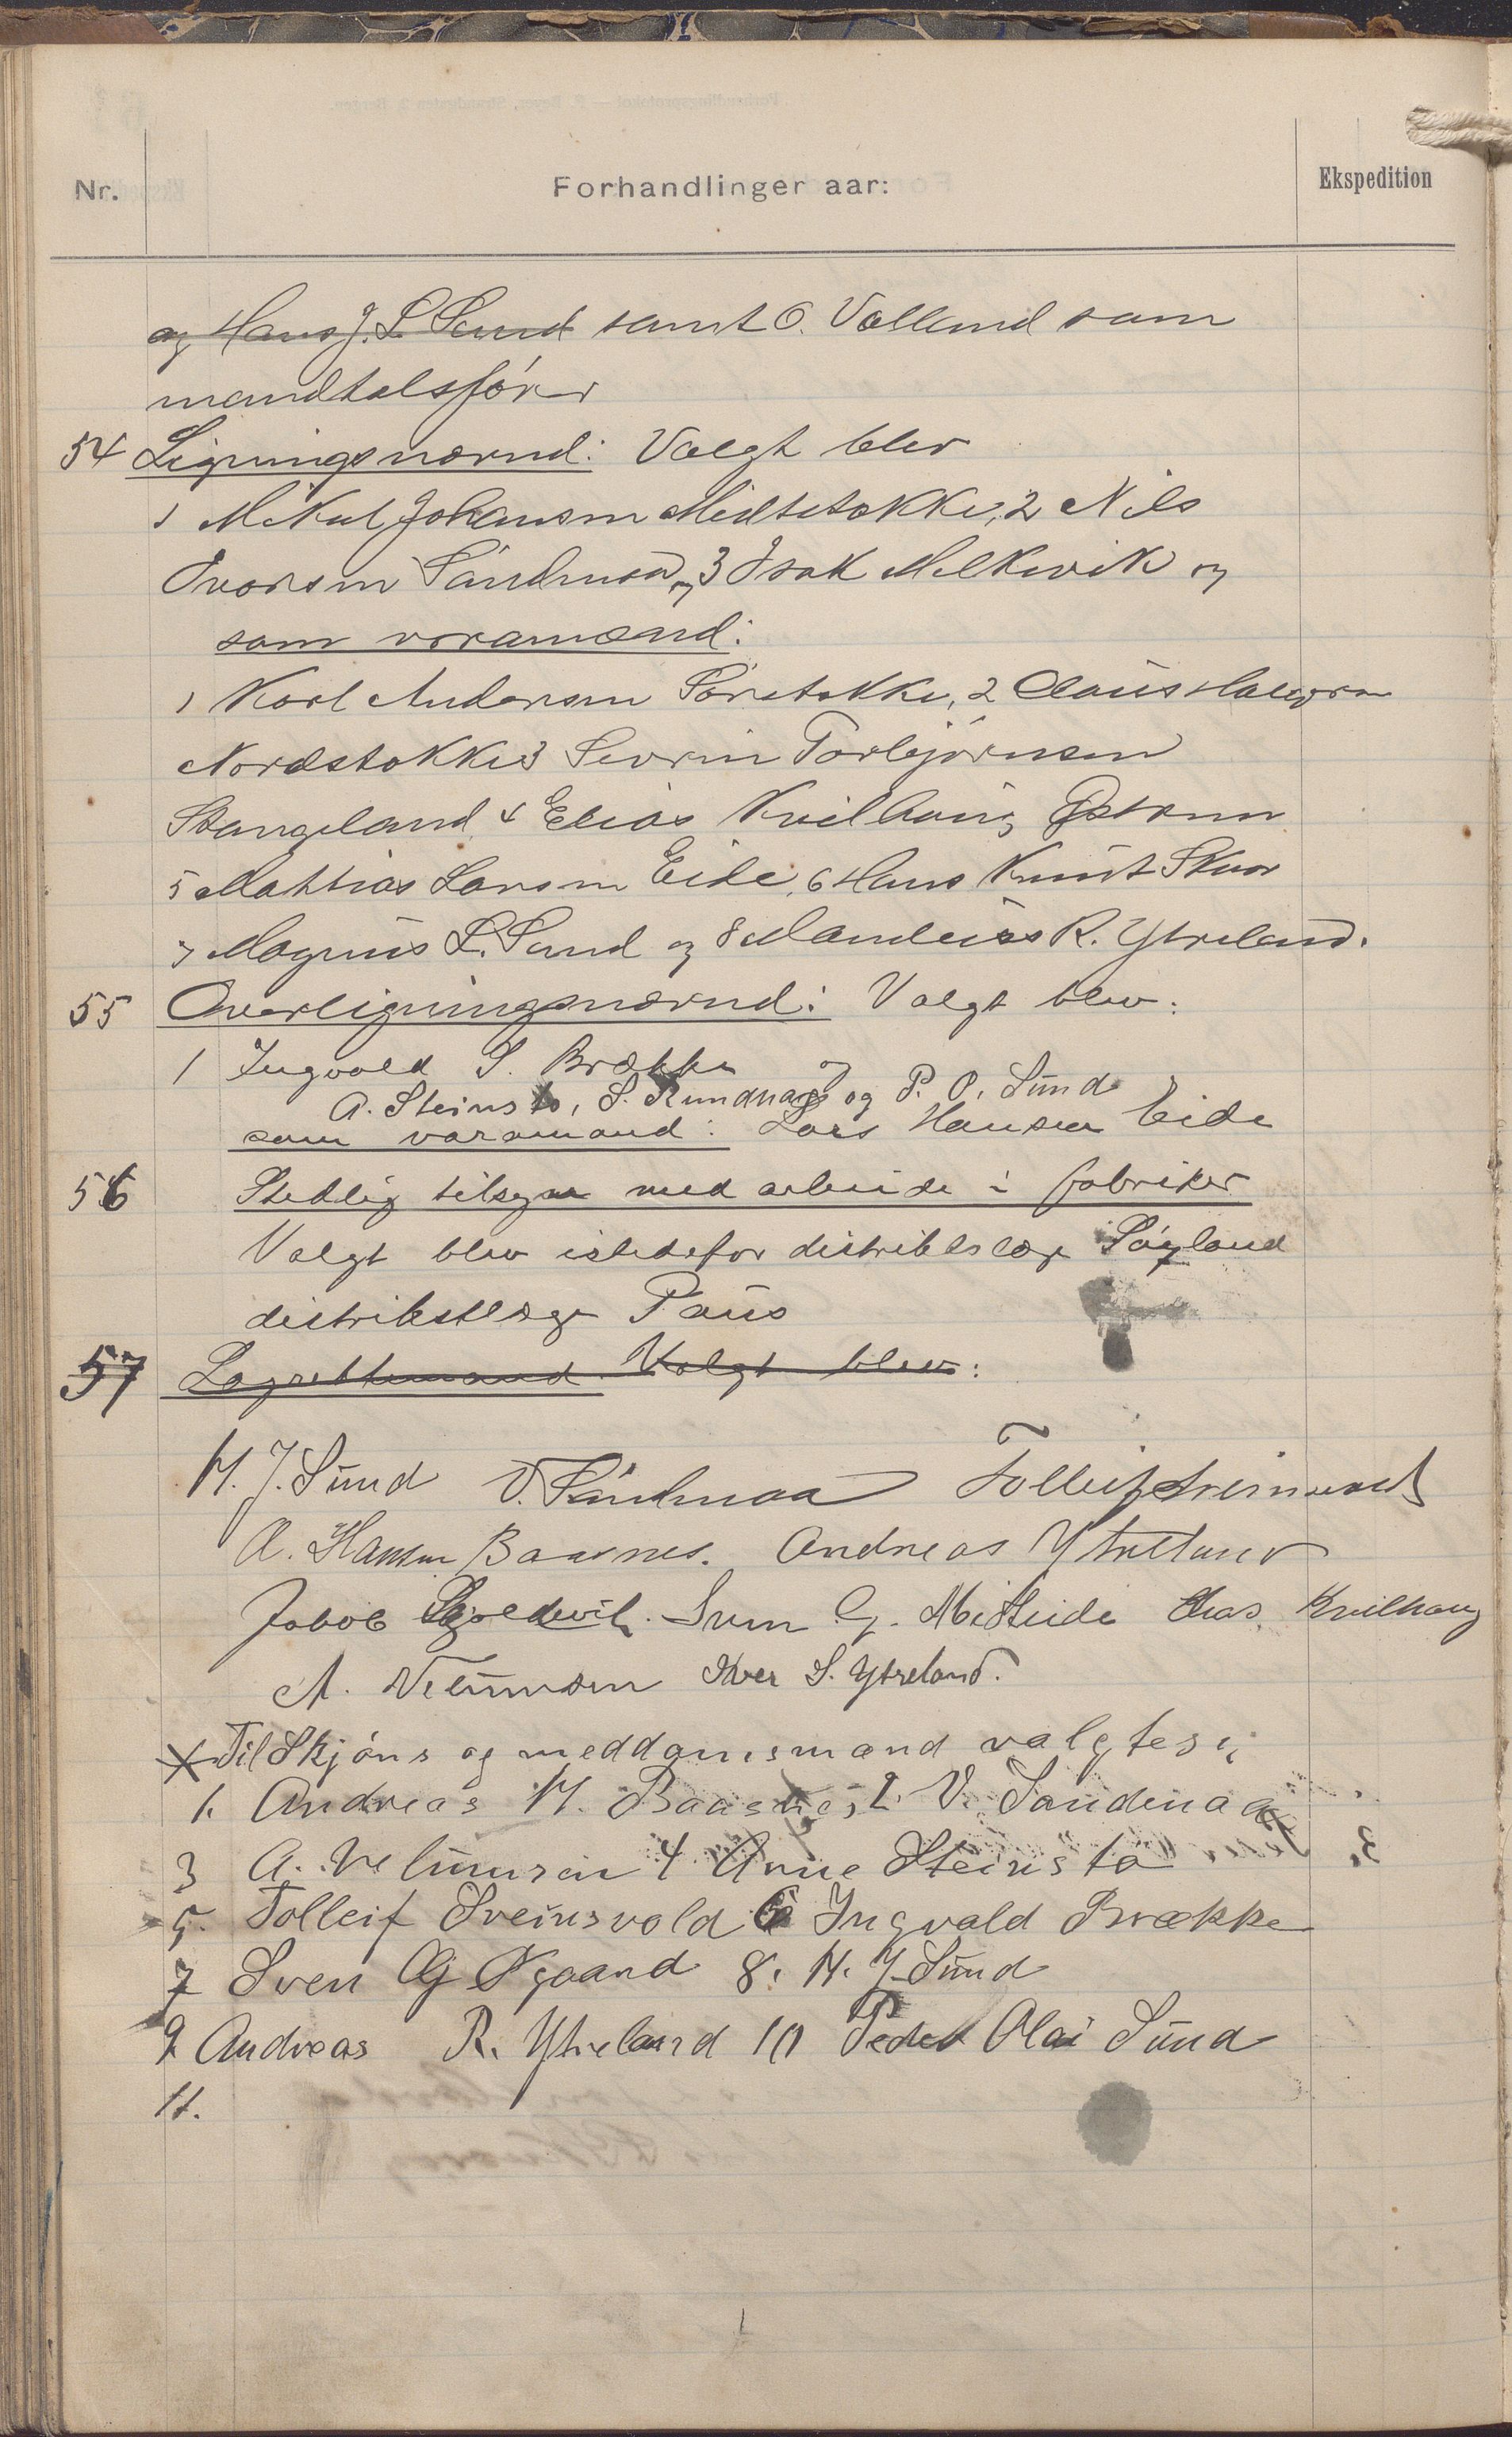 Nr.
Forhandlinger aar:
Ekspedition
og Hans J. L. Sund samt O. Valland som
mandtalsfører
54 Ligningsnævnd: Valgt blev
1 Mikal Johansen Midtstokke, 2 Nils
Ivarsen Sandmoa, 3 Isak Melkevik og
som varamænd:
1 Karl Andersen Sørstokke, 2 Claus
Nordstokke 3 Sevrin Torbjørnsen
Stangeland 4 Elias Kvilhaug
5 Mathias Larsen Eide, 6 Hans Knut Skaar
7 Magnus L. Sund og 8 Mandeius R. Ytreland.
55 Overligningsnævnd: Valgt blev:
1 Ingvald S. Brække
A. Steinstø, S. og P. O. Sund
som varamænd: Lars Hansen Eide
56 Stedlig tilsyn med arbeide i fabriker
Valgt blev istedefor distriktslæge Søyland
distriktslæge Paus
57 Lagrettemænd Valgt blev:
H. J. Sund V. Sandmoa Tolleif Sveinsvold
A. Hansen Baasnes. Andreas Ytreland
Jakob Skjoldevik. Sven G. Elias Kvilhaug
A. Velumsen Iver S. Ytreland.
Til Skjøns og meddomsmænd valgtes:
1. Andreas H. Baasnes, 2. V. Sandmoa
3 A. Velumsen 4 Arne Steinstø
5. Tolleif Sveinsvold 6 Ingvald Brække
7 Sven G Øgaard 8. H. J. Sund
9 Andreas R. Ytreland 10 Peder Olai Sund
11.